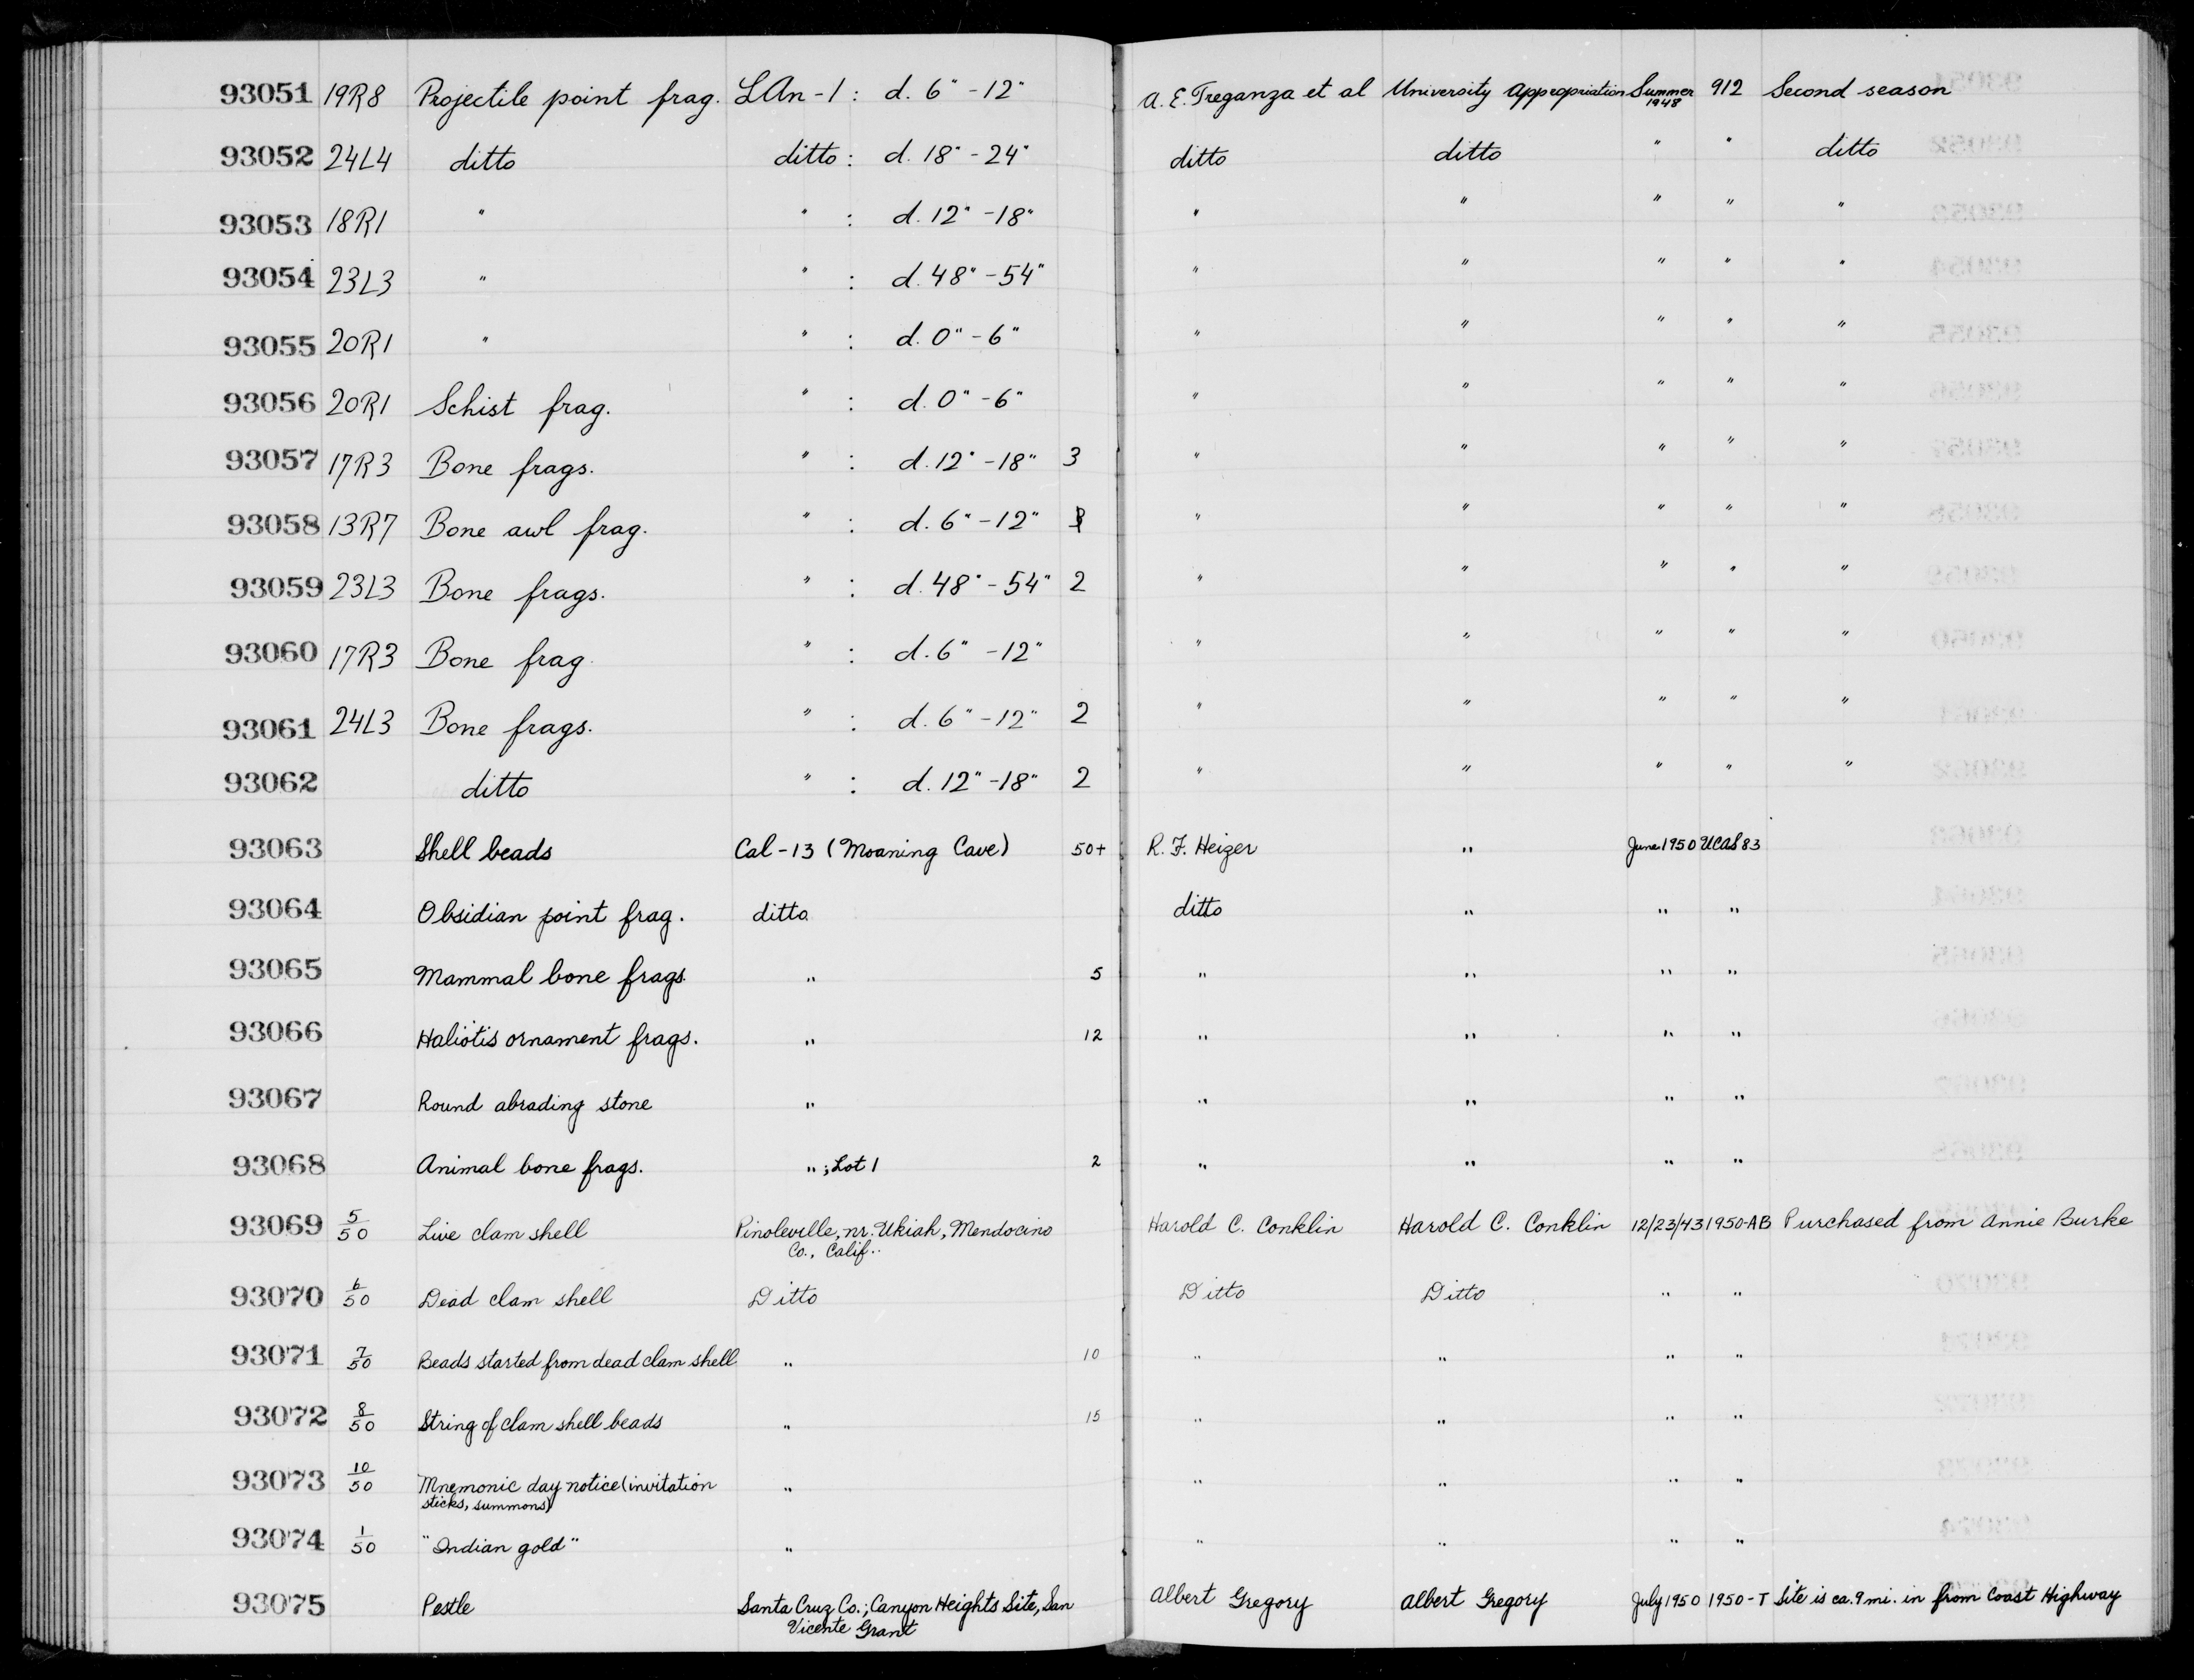 93051 19R8 Projectile point frag. LAn-1 : d. 6" - 12" A. E. Treganza et al University Appropriation Summer 1948 912 Second season
93052 24L4 ditto ditto : d. 18" - 24" ditto ditto " " ditto
93053 18R1 " " : d. 12" - 18" " " " " "
93054 23L3 " " : d. 48" - 54" " " " " "
93055 20R1 " " : d. 0" - 6" " " " " "
93056 20R1 Schist frag. " : d. 0" - 6" " " " " "
93057 17R3 Bone frags. " : d. 12" - 18" 3 " " " " "
93058 13R7 Bone awl frag. " : d. 6" - 12" " " " " "
93059 23L3 Bone frags. " : d. 48" - 54" 2 " " " " "
93060 17R3 Bone frag. " : d. 6" - 12" " " " " "
93061 24L3 Bone frags. " : d. 6" - 12" 2 " " " " "
93062 ditto " : d. 12" - 18" 2 " " " " "
93063 Shell beads Cal-13 (Moaning Cave) 50+ R. F. Heizer " June 1950 UCAS 83
93064 Obsidian point frag. ditto ditto " " "
93065 Mammal bone frags. " 5 " " " "
93066 Haliotis ornament frags. " 12 " " " "
93067 Round abrading stone " " " " "
93068 Animal bone frags. " ; Lot 1 2 " " " "
93069 5/50 Live clam shell Pinoleville, nr. Ukiah, Mendocino Harold C. Conklin Harold C. Conklin 12/23/43 1950-AB Purchased from Annie Burke
Co., Calif.
93070 6/50 Dead clam shell Ditto Ditto Ditto " "
93071 7/50 Beads started from dead clam shell " 10 " " " "
93072 8/50 String of clam shell beads " 15 " " " "
93073 10/50 Mnemonic day notice (invitation " " " " "
sticks, summons)
93074 1/50 "Indian gold" " " " " "
93075 Pestle Santa Cruz Co.; Canyon Heights Site, San Albert Gregory Albert Gregory July 1950 1950-T Site is ca. 9 mi. in from Coast Highway
Vicente Grant